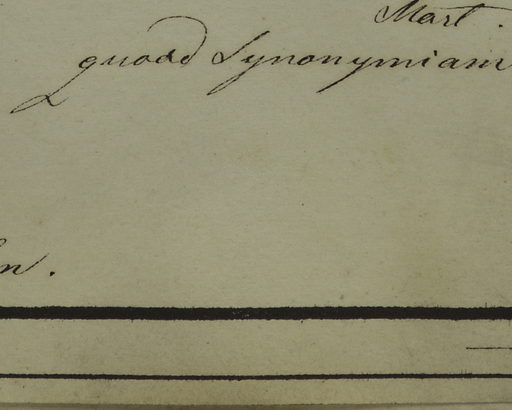 Mart.
quoad Synonymiam